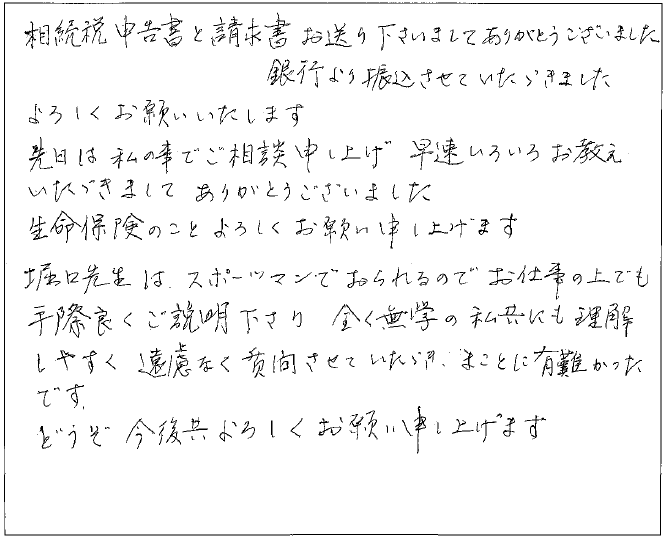 相続税申告書と請求書お送り下さいましてありがとうございました
銀行より振込させていただきました
よろしくお願いいたします
先日は私の事でご相談申し上げ 早速いろいろお教え
いただきまして ありがとうございました
生命保険のこと よろしくお願い申し上げます
堀口先生は、スポーツマンでおられるので お仕事の上でも
手際良くご説明下さり 全く無学の私共にも理解
しやすく 遠慮なく質問させていただき、まことに有難かった
です。
どうぞ 今後共よろしくお願い申し上げます